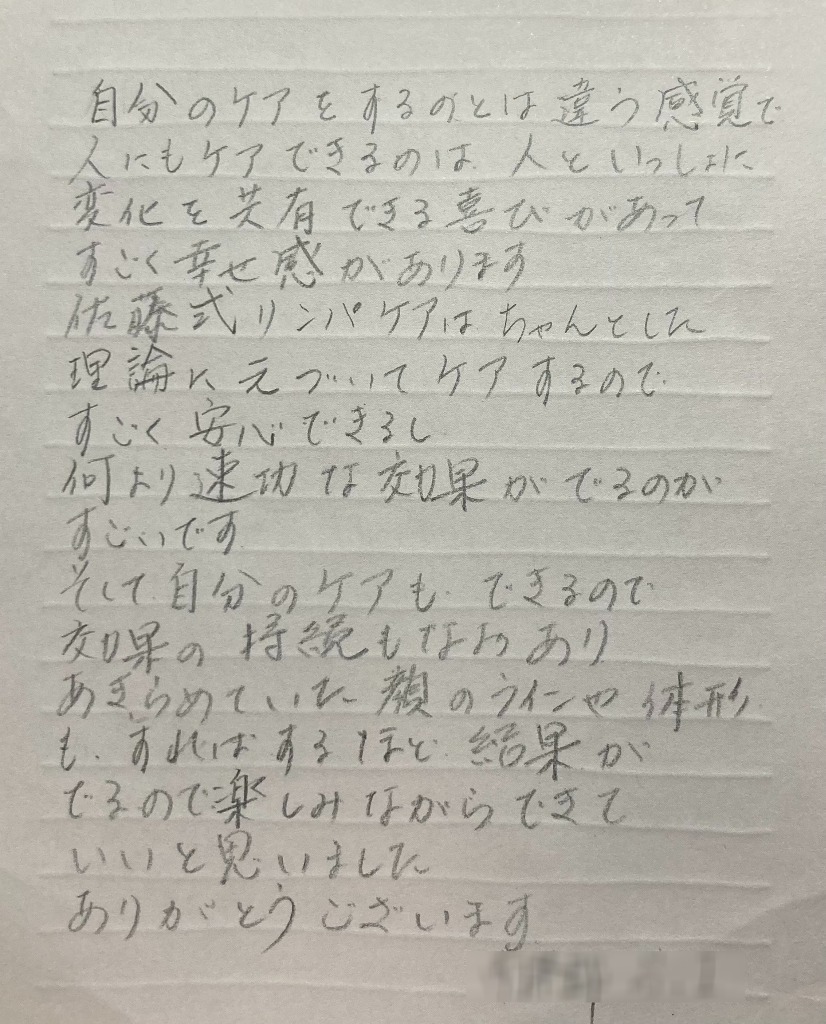 自分のケアをするのとは違う感覚で
人にもケアできるのは 人といっしょに
変化を共有できる喜びがあって
すごく幸せ感があります
佐藤式リンパケアはちゃんとした
理論に元づいてケアするので
すごく安心できるし
何より速功な効果がでるのが
すごいです
そして自分のケアも できるので
効果の持続もなおあり
あきらめていた顔のラインや体形
も すればするほど 結果が
でるので楽しみながらできて
いいと思いました
ありがとうございます